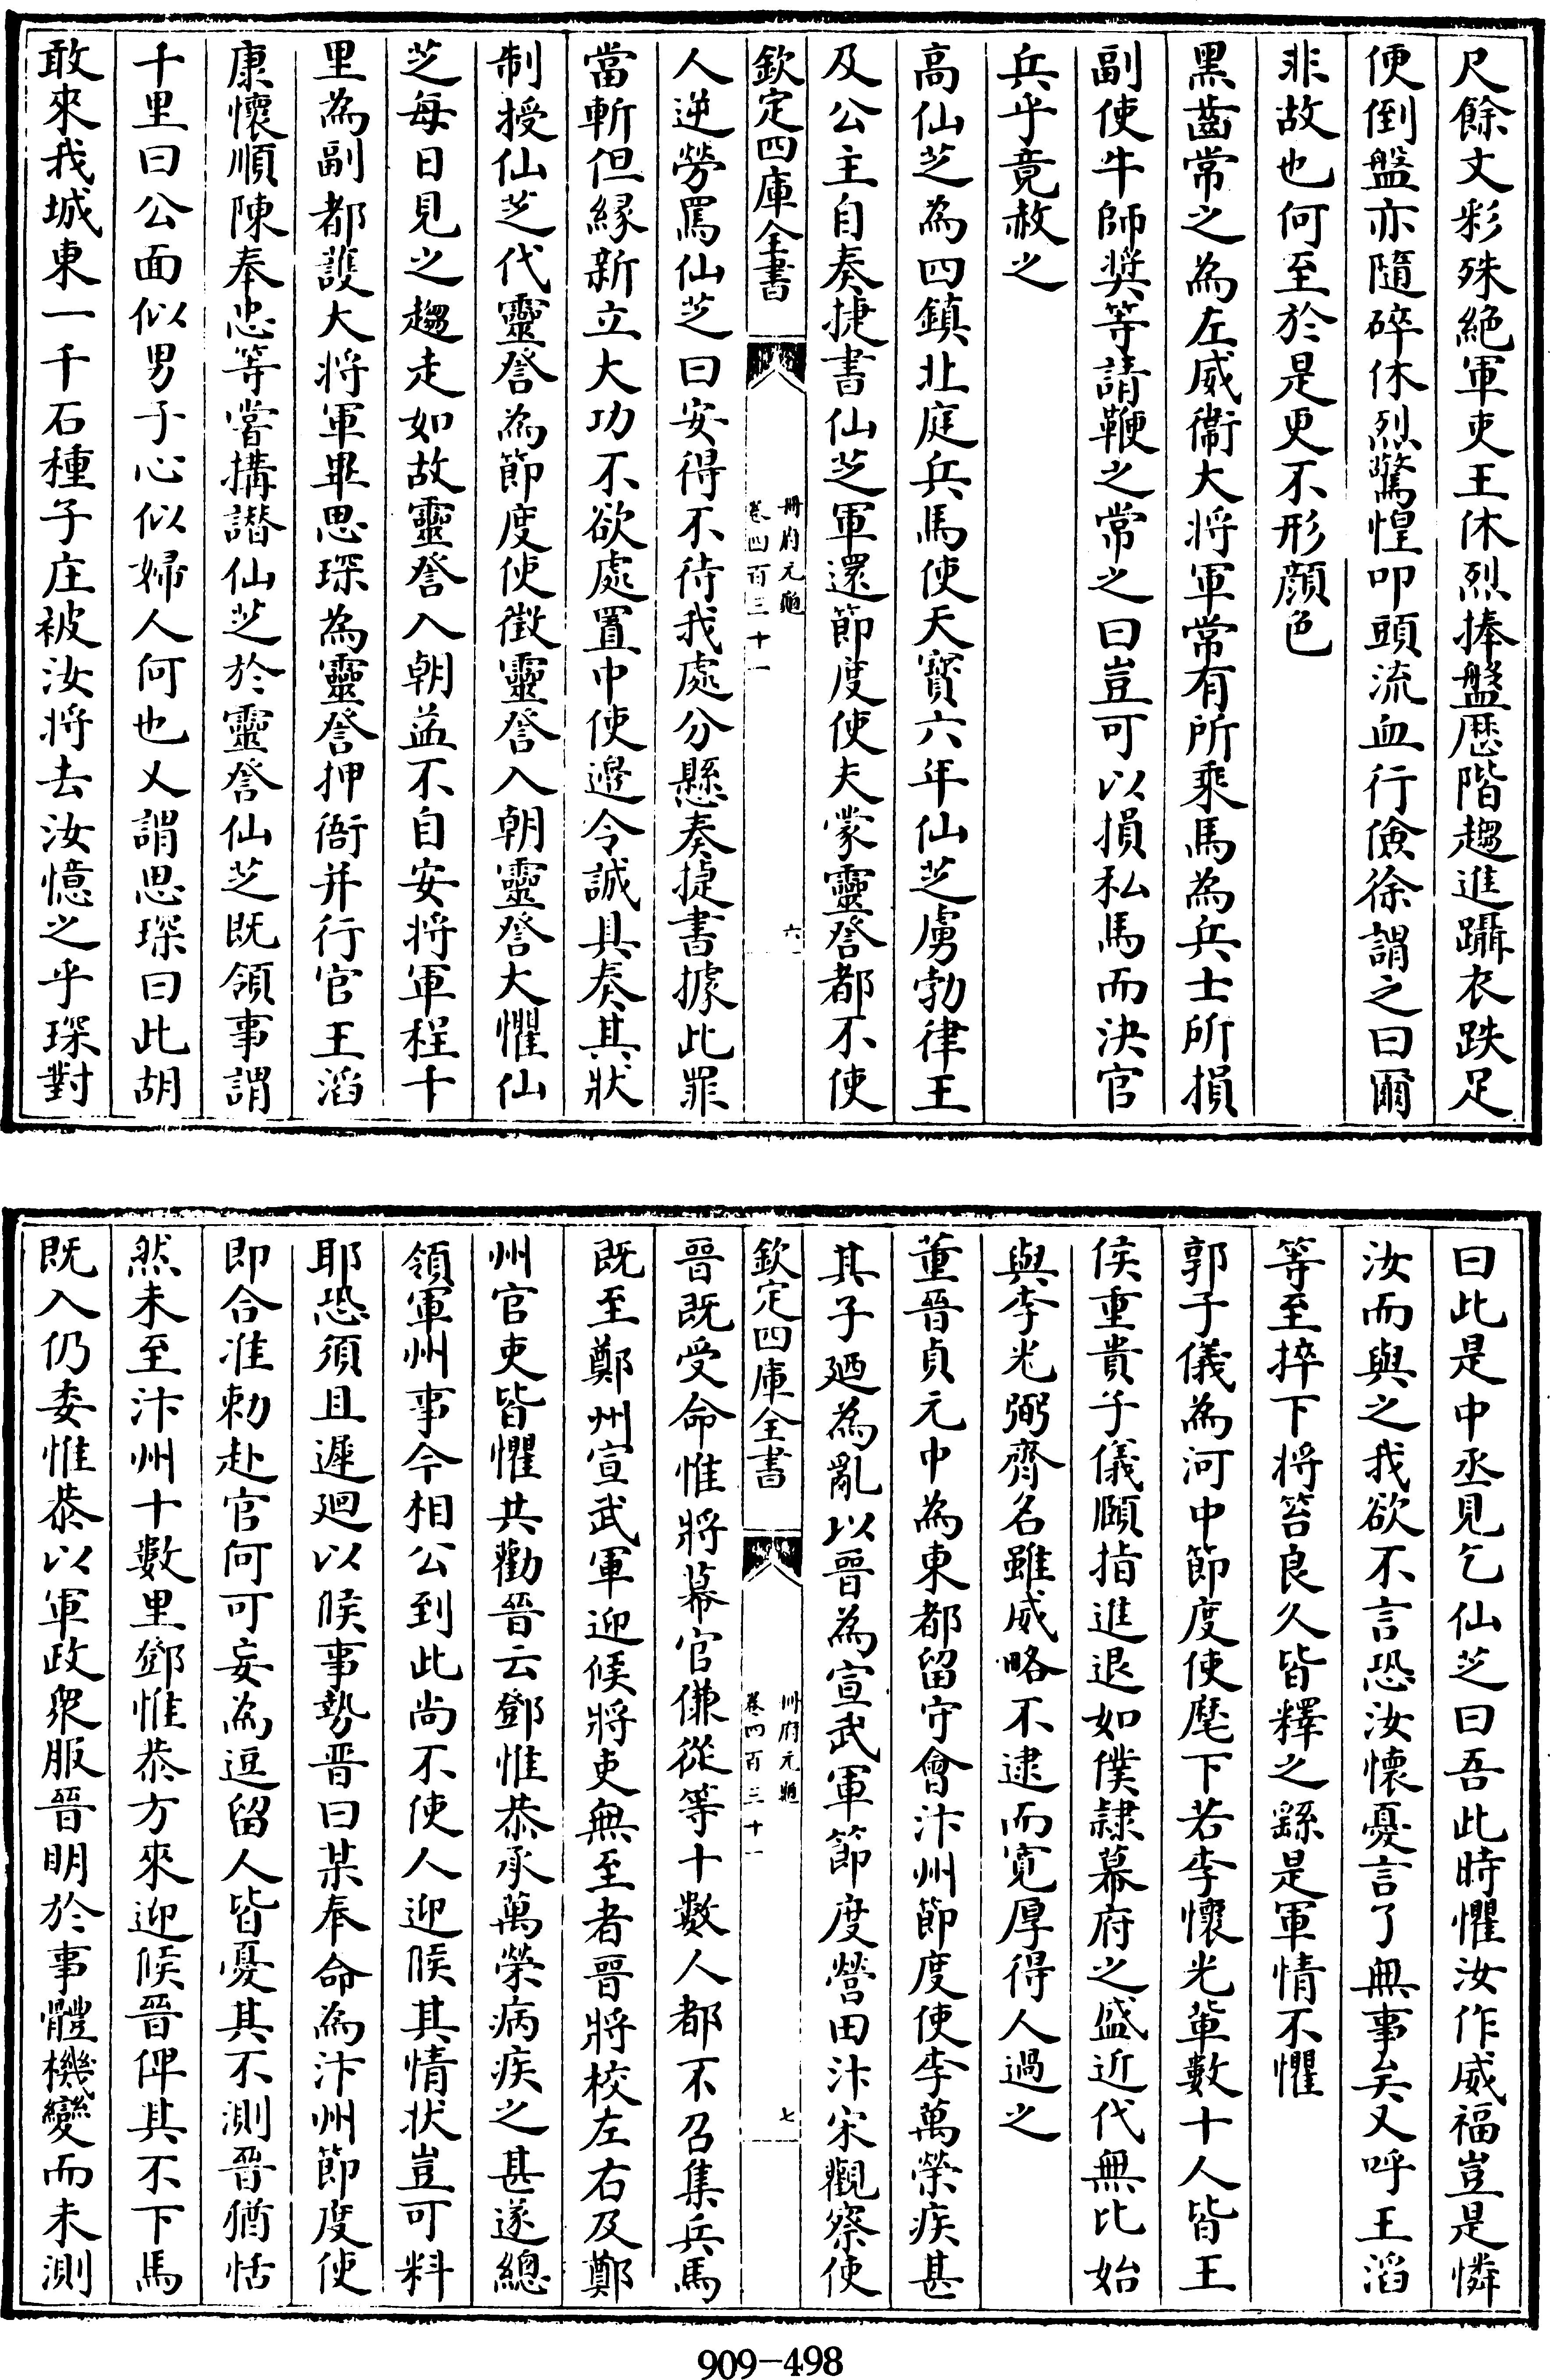 尺餘文彩殊絶軍吏王休烈捧盤歴階趨進躡衣跌足
便倒盤亦隨碎休烈驚惶叩頭流血行儉徐謂之曰爾
非故也何至於是更不形顔色
黑齒常之為左威衞大將軍常有所乘馬為兵士所損
副使牛師奬等請鞭之常之曰豈可以損私馬而決官
兵乎竟赦之
高仙芝為四鎮北庭兵馬使天寳六年仙芝虜勃律王
及公主自奏捷書仙芝軍還節度使夫蒙靈詧都不使
欽定四庫全書
冊府元龜
卷四百三十一
六
人逆勞罵仙芝曰安得不待我處分懸奏捷書據此罪
當斬但緣新立大功不欲處置中使邊令誠具奏其狀
制授仙芝代靈詧為節度使徵靈詧入朝靈詧大懼仙
芝每日見之趨走如故靈詧入朝益不自安將軍程千
里為副都護大將軍畢思琛為靈詧押衙并行官王滔
康懷順陳奉忠等嘗搆譖仙芝於靈詧仙芝既領事謂
千里曰公面似男子心似婦人何也又謂思琛曰此胡
敢來我城東一千石種子庄被汝將去汝憶之乎琛對
曰此是中丞見乞仙芝曰吾此時懼汝作威福豈是憐
汝而與之我欲不言恐汝懷憂言了無事矣又呼王滔
等至捽下將笞良久皆釋之繇是軍情不懼
郭子儀為河中節度使麾下若李懷光軰數十人皆王
侯重貴子儀頤指進退如僕隷幕府之盛近代無比始
與李光弼齊名雖威略不逮而寛厚得人過之
董晉貞元中為東都留守會汴州節度使李萬榮疾甚
其子廼為亂以晉為宣武軍節度營田汴宋觀察使
欽定四庫全書
冊府元龜
卷四百三十一
七
晉既受命惟將幕官傔從等十數人都不召集兵馬
既至鄭州宣武軍迎候將吏無至者晉將校左右及鄭
州官吏皆懼共勸晉云鄧惟恭承萬榮病疾之甚遂總
領軍州事今相公到此尚不使人迎候其情状豈可料
耶恐須且遲廻以候事勢晉曰某奉命為汴州節度使
即合准勅赴官何可妄為逗留人皆憂其不測晉猶恬
然未至汴州十數里鄧惟恭方來迎候晉俾其不下馬
既入仍委惟恭以軍政衆服晉明於事體機變而未測
909-498